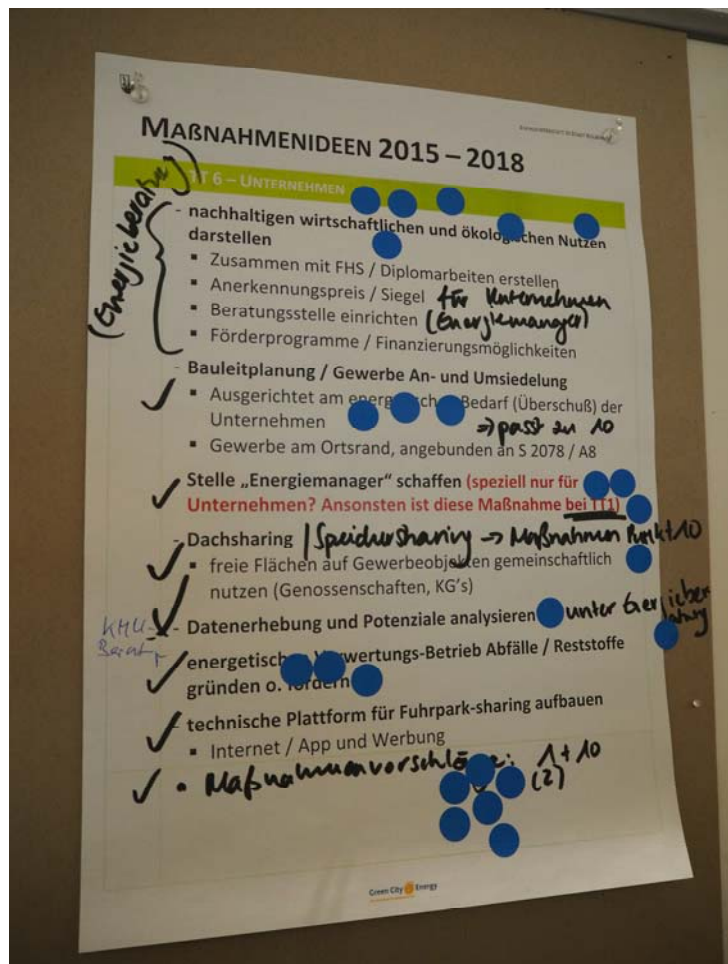 MAßNAHMENIDEEN 2015 – 2018
TT 6 – UNTERNEHMEN
(Energieberatung)
- nachhaltigen wirtschaftlichen und ökologischen Nutzen
darstellen
▪ Zusammen mit FHS / Diplomarbeiten erstellen
▪ Anerkennungspreis / Siegel für Unternehmen
▪ Beratungsstelle einrichten (Energiemanager)
▪ Förderprogramme / Finanzierungsmöglichkeiten
- Bauleitplanung / Gewerbe An- und Umsiedelung
▪ Ausgerichtet am energetischen Bedarf (Überschuß) der
Unternehmen
⇒ passt zu 10
▪ Gewerbe am Ortsrand, angebunden an S 2078 / A8
- Stelle „Energiemanager" schaffen (speziell nur für
Unternehmen? Ansonsten ist diese Maßnahme bei TT1)
- Dachsharing / Speichersharing → Maßnahmen Punkt 10
▪ freie Flächen auf Gewerbeobjekten gemeinschaftlich
nutzen (Genossenschaften, KG's)
KMU-
- Datenerhebung und Potenziale analysieren unter Energieberatung
- energetischen Verwertungs-Betrieb Abfälle / Reststoffe
gründen o. fördern
- technische Plattform für Fuhrpark-sharing aufbauen
▪ Internet / App und Werbung
• Maßnahmenvorschläge: 1 + 10
(2)
Green City Energy